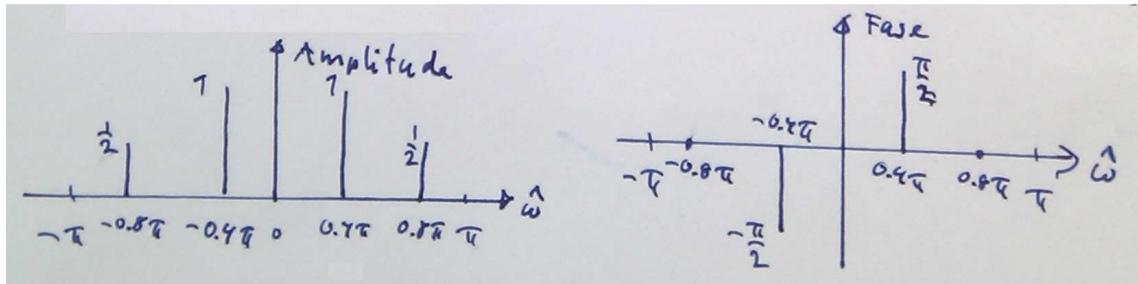 Amplituda
1
1
1/2
1/2
-π -0.8π -0.4π 0 0.4π 0.8π π
ω̂
Fase
π/2
-0.4π
-π -0.8π
0.4π 0.8π π
ω̂
-π/2